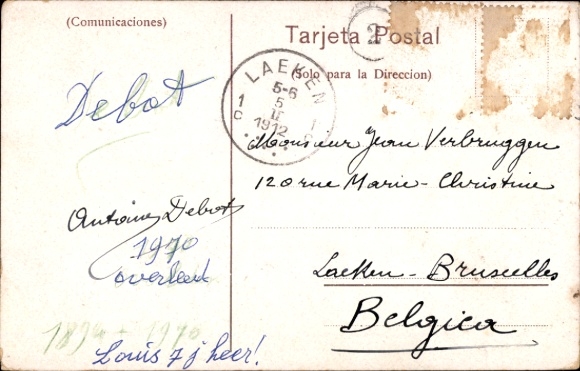 (Comunicaciones)
Tarjeta Postal
(Solo para la Direccion)
2
LAEKEN
5-6
5
1 1
C C
1912
Debot
Monsieur Jean Verbruggen
120 rue Marie-Christine
Laeken-Bruxelles
Belgica
Antoine Debot
1970
overleed
1894 - 1970
Louis 7 j heer!